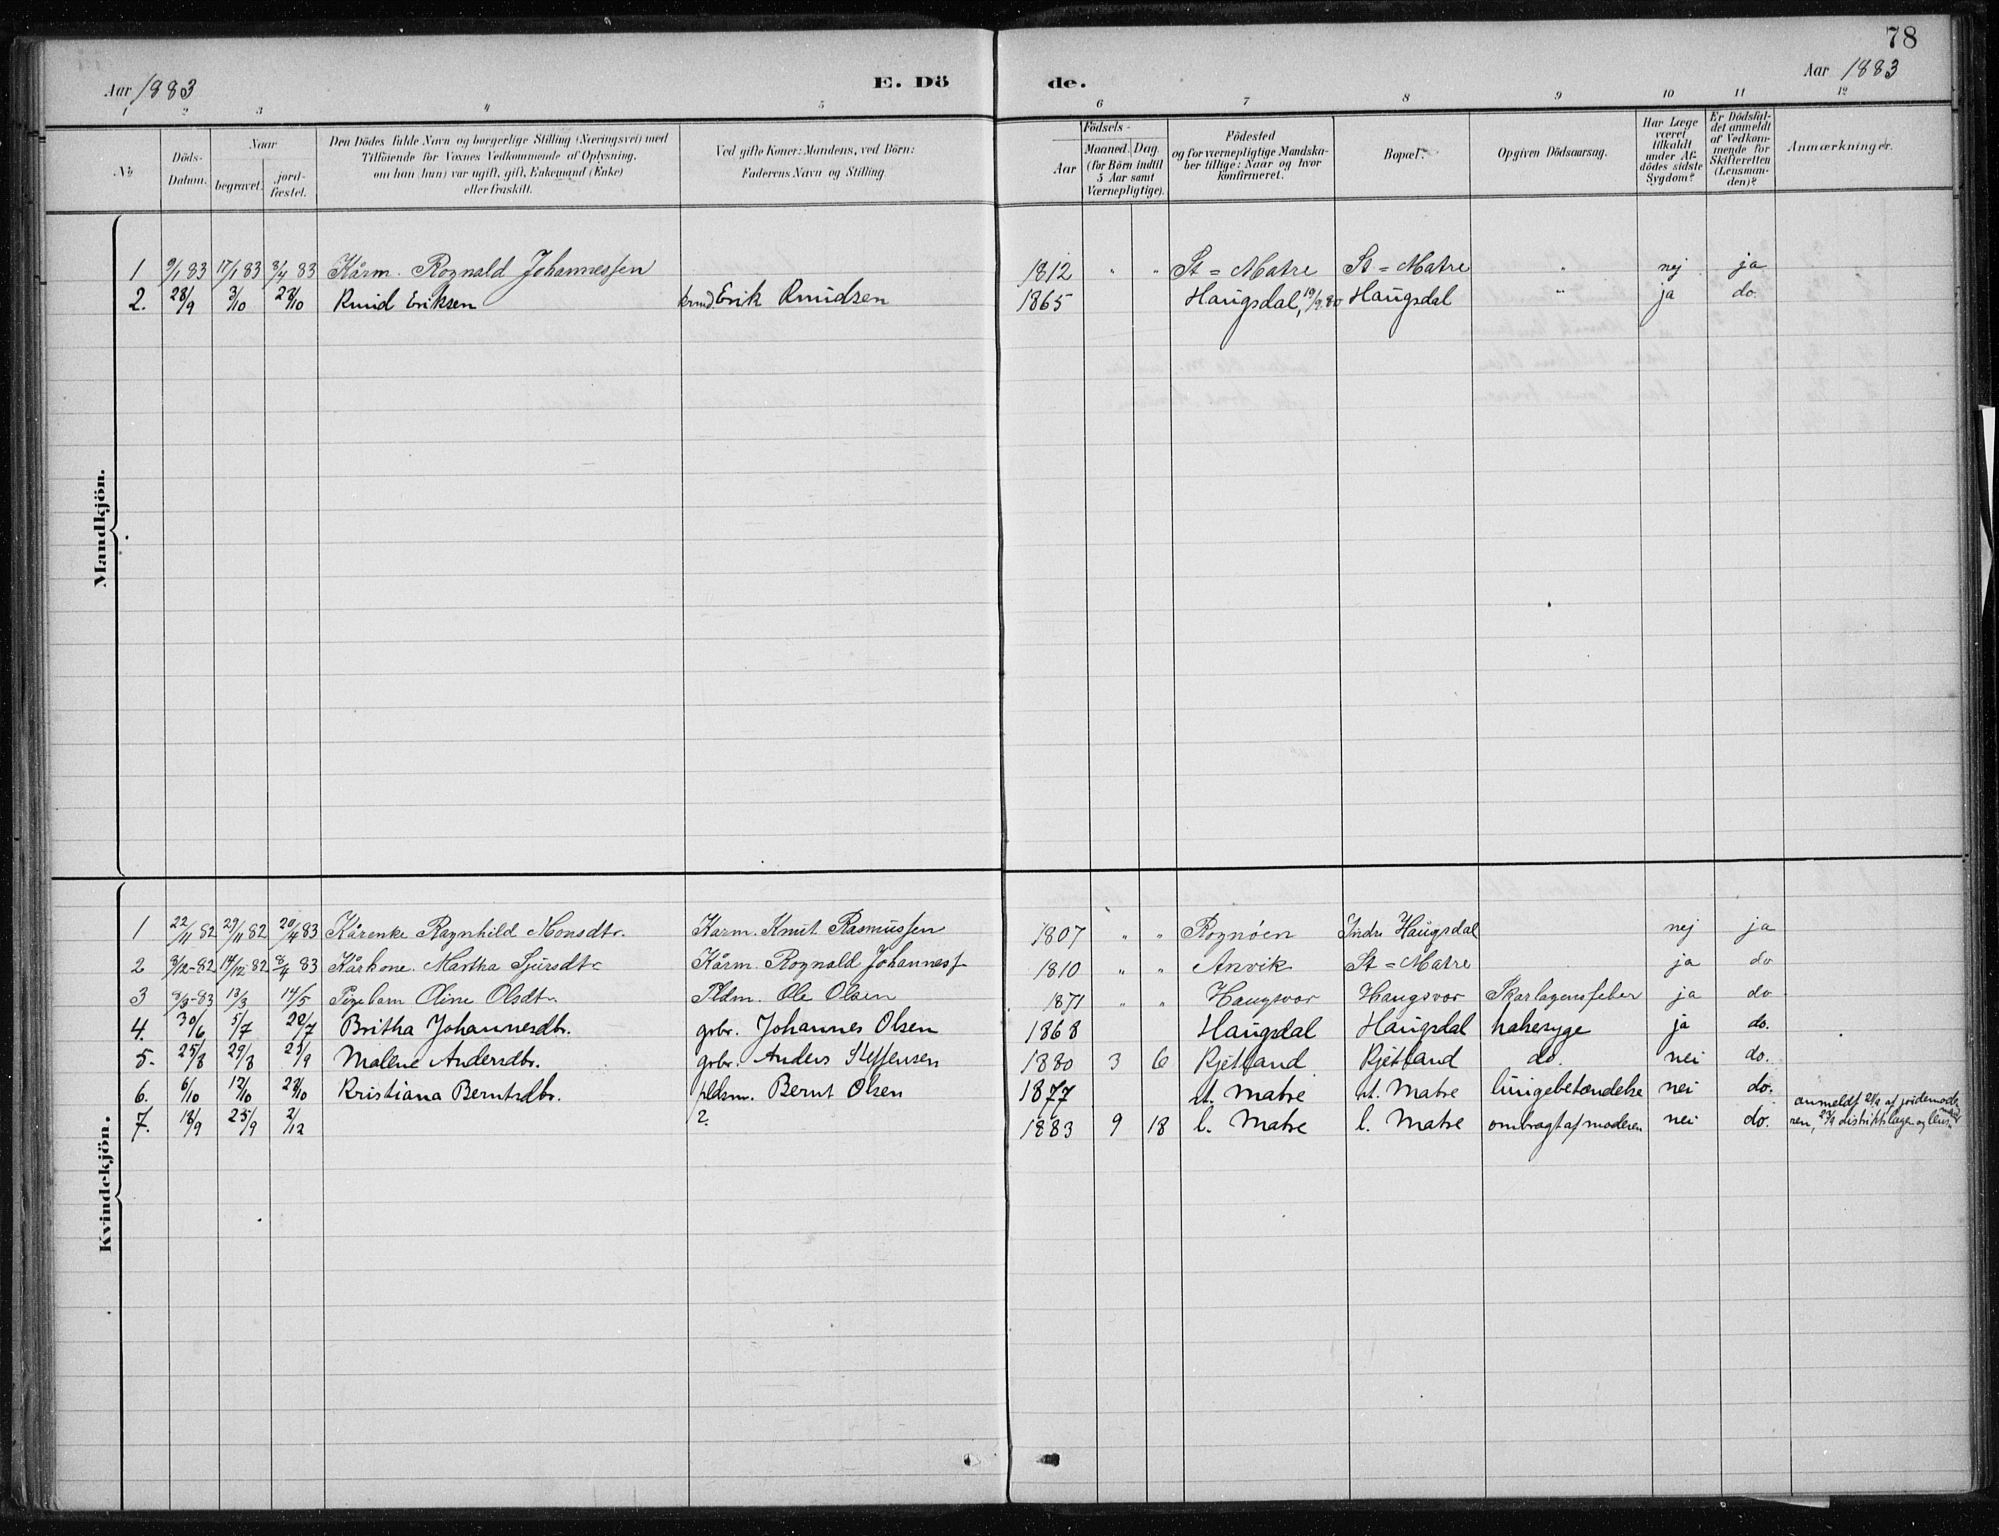 78
Aar 1883
E. Dö
de.
Aar 1883
1 2 3 4 5 6 7 8 9 10 11 12
No
Döds-Datum.
Naar
begravet.
jordfæstet.
Den Dödes fulde Navn og borgerlige Stilling (Næringsvei) med
Tilföiende for Voxnes Vedkommende af Oplysning,
om han (hun) var ugift, gift, Enkemand (Enke)
eller fraskilt.
Ved gifte Koner: Mandens, ved Börn:
Faderens Navn og Stilling.
Födsels-
Aar
Maaned. Dag.
(for Börn indtil
5 Aar samt
Værnepligtige).
Födested
og for værnepligtige Mandska-
ber tillige: Naar og hvor
konfirmeret.
Bopæl.
Opgiven Dödsaarsag.
Har Læge
været
tilkaldt
under Af-
dödes sidste
Sygdom?
Er Dödsfal-
det anmeldt
af Vedkom-
mende for
Skifteretten
(Lensman-
den)?
Anmærkninger.
Mandkjön.
1 9/1 83 17/1 83 8/4 83 Kårm. Rognald Johannessen 1812 " " St = Matre St = Matre " nej ja
2. 28/9 3/10 28/10 Knud Eriksen Erik Knudsen 1865 Haugsdal, 19/9 80 Haugsdal " ja do.
Kvindekjön.
1 22/11 82 29/11 82 20/4 83 Kårenke Ragnhild Monsdtr. Karm. Knut Rasmussen 1807 " " Rognøen Indre Haugsdal nej ja
2 8/12-82 14/12 82 8/4 83 Kårkone. Martha Sjursdtr Kårm. Rognald Johannesf 1810 " " Anvik St = Matre ja do
3 8/3-83 13/3 14/5 Pigebarn Oline Olsdtr Pldm. Ole Olsen 1871 " " Haugsvor Haugsvor Skarlagensfeber ja do
4. 30/6 5/7 20/7 Britha Johannesdtr. grbr. Johannes Olsen 1868 Haugsdal Haugsdal halsesyge ja do.
5. 25/8 29/8 21/9 Malene Andersdtr. grbr. Anders Steffensen 1880 3 6 Kjetland Kjetland do. nei do.
6. 6/10 12/10 28/10 Kristiana Berntsdtr. pldsm. Bernt Olsen 1877 st. Matre st. Matre lungebetændelse nei do.
7. 18/9 25/9 2/12 ? 1883 9 18 l. Matre l. Matre ombragt af moderen nei do.
anmeldt 21/9 af jordemode-
ren, 23/9 distriktslægen og lens-